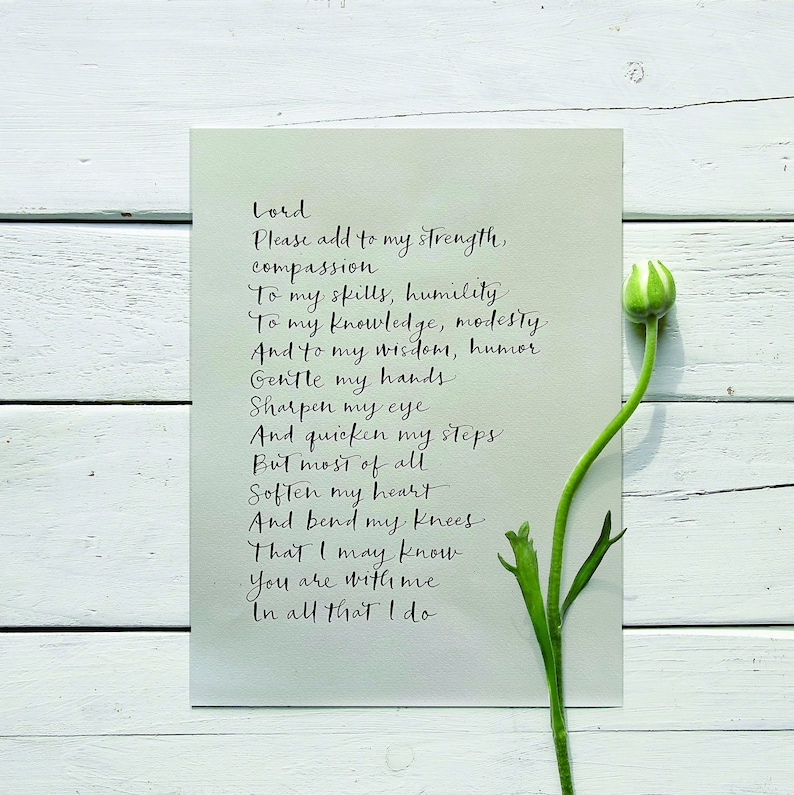 Lord
Please add to my strength,
compassion
To my skills, humility
To my knowledge, modesty
And to my wisdom, humor
Gentle my hands
Sharpen my eye
And quicken my steps
But most of all
Soften my heart
And bend my knees
That I may know
You are with me
In all that I do